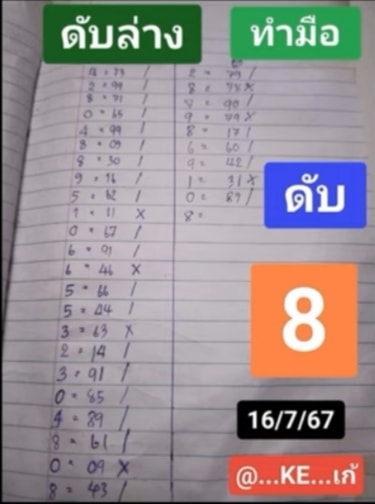 ดับล่าง
ทำมือ
2 = 99 /
8 = 71 /
0 = 65 /
4 = 99 /
8 = 09 /
8 = 30 /
9 = 16 /
5 = 82 /
1 = 11 X
0 = 67 /
6 = 91 /
6 = 46 X
5 = 66 /
5 = 44 /
3 = 63 X
2 = 14 /
3 = 91 /
0 = 85 /
4 = 89 /
8 = 61 /
0 = 09 X
8 = 43 /
2 = 79 /
7 = 90 /
9 = 79 X
8 = 17 /
6 = 60 /
9 = 42 /
1 = 31 X
0 = 89 /
8 =
ดับ
8
16/7/67
@...KE...เก้